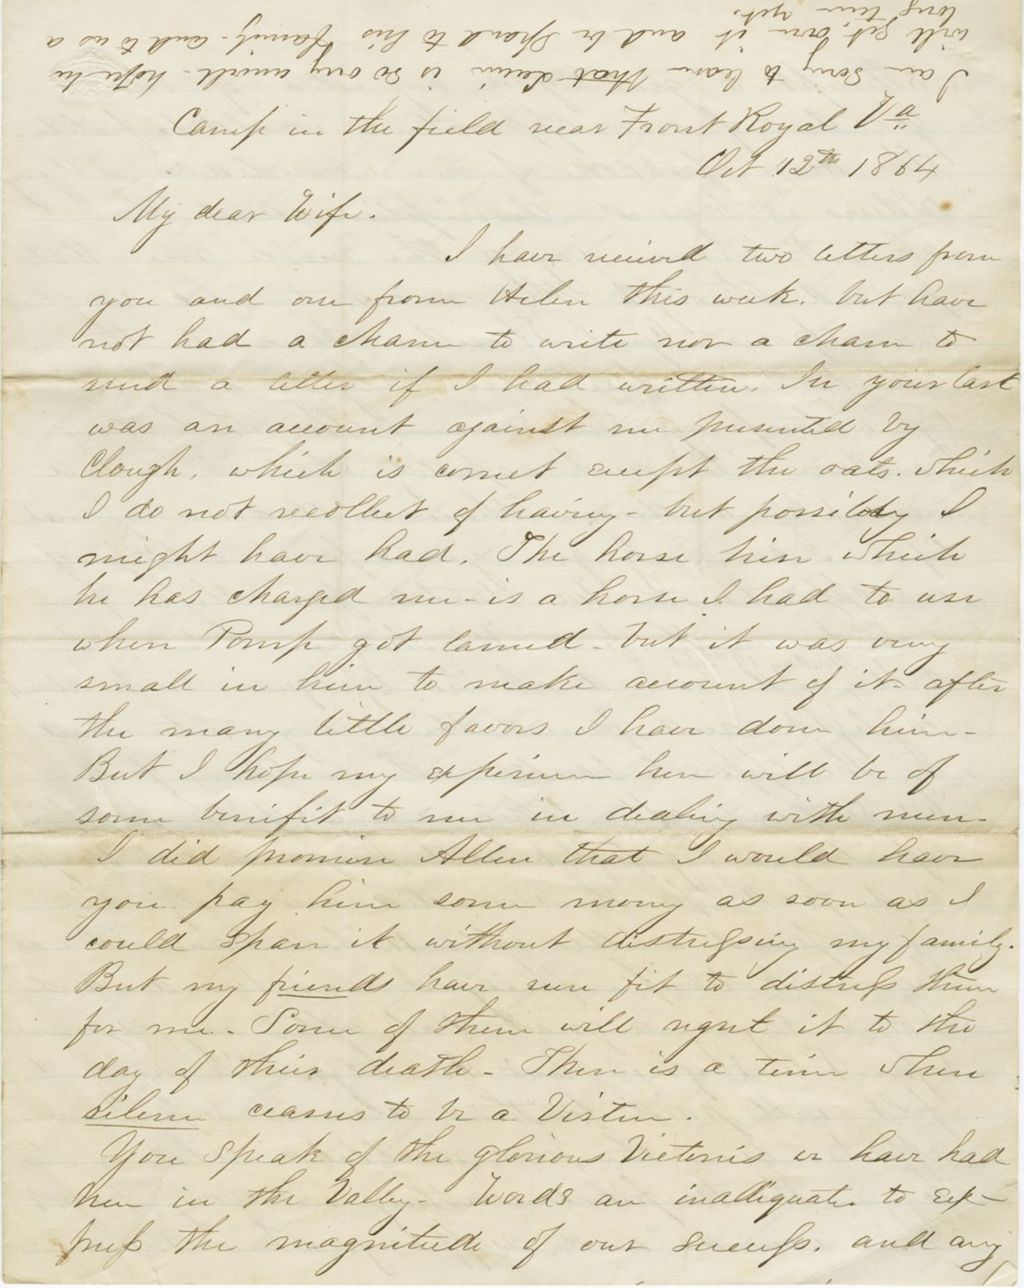 I am sorry to learn that Levi is so very unwell - hope he
will get over it and be spared to his family - and to us a
long time yet.
Camp in the field near Front Royal Va
Oct 12th 1864
My dear Wife.
I have recieved two letters from
you and one from Helen this week. but have
not had a chance to write nor a chance to
send a letter if I had written. In your last
was an account against me presented by
Clough, which is correct except the oats. which
I do not recollect of having - but possibly I
might have had. The horse hire which
he has charged me - is a horse I had to use
when Pomp got lamed - but it was very
small in him to make account of it - after
the many little favors I have done him -
But I hope my experience here will be of
some benifit to me in dealing with men -
I did promise Allen that I would have
you pay him some money as soon as I
could spare it without distressing my family.
But my friends have seen fit to distress them
for me - Some of them will regret it to the
day of their death - There is a time when
silence ceases to be a Virtue.
You speak of the glorious Victories we have had
here in the Valley - Words are inadequate to exp-
press the magnitude of our success. and any